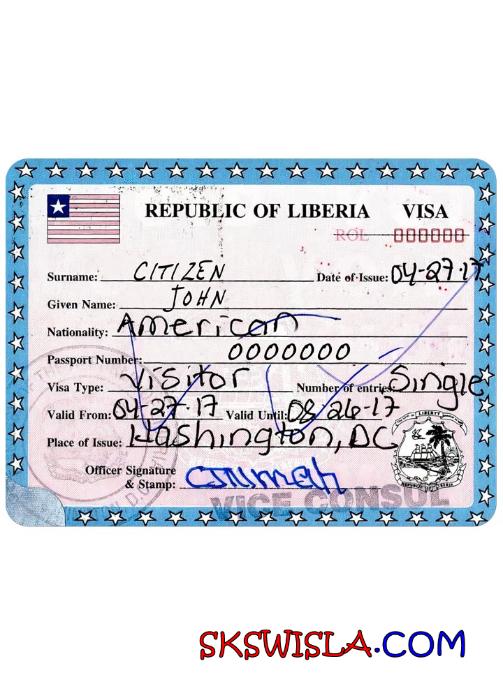 REPUBLIC OF LIBERIA VISA
ROL 000000
Surname: CITIZEN Date of Issue: 04-27-17
Given Name: JOHN
Nationality: American
Passport Number: 0000000
Visa Type: Visitor Number of entries: Single
Valid From: 04-27-17 Valid Until: 08-26-17
Place of Issue: Washington, DC
Officer Signature
& Stamp:
VICE CONSUL
SKSWISLA.COM